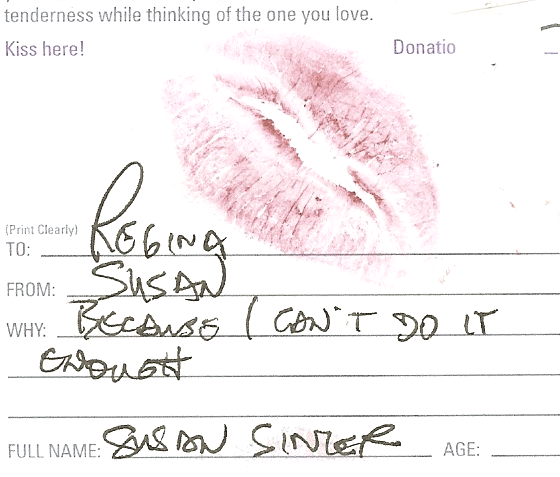 tenderness while thinking of the one you love.
Kiss here! Donatio
(Print Clearly)
TO: REGINA
FROM: SUSAN
WHY: BECAUSE I CAN'T DO IT
ENOUGH
FULL NAME: SUSAN SINGER AGE: